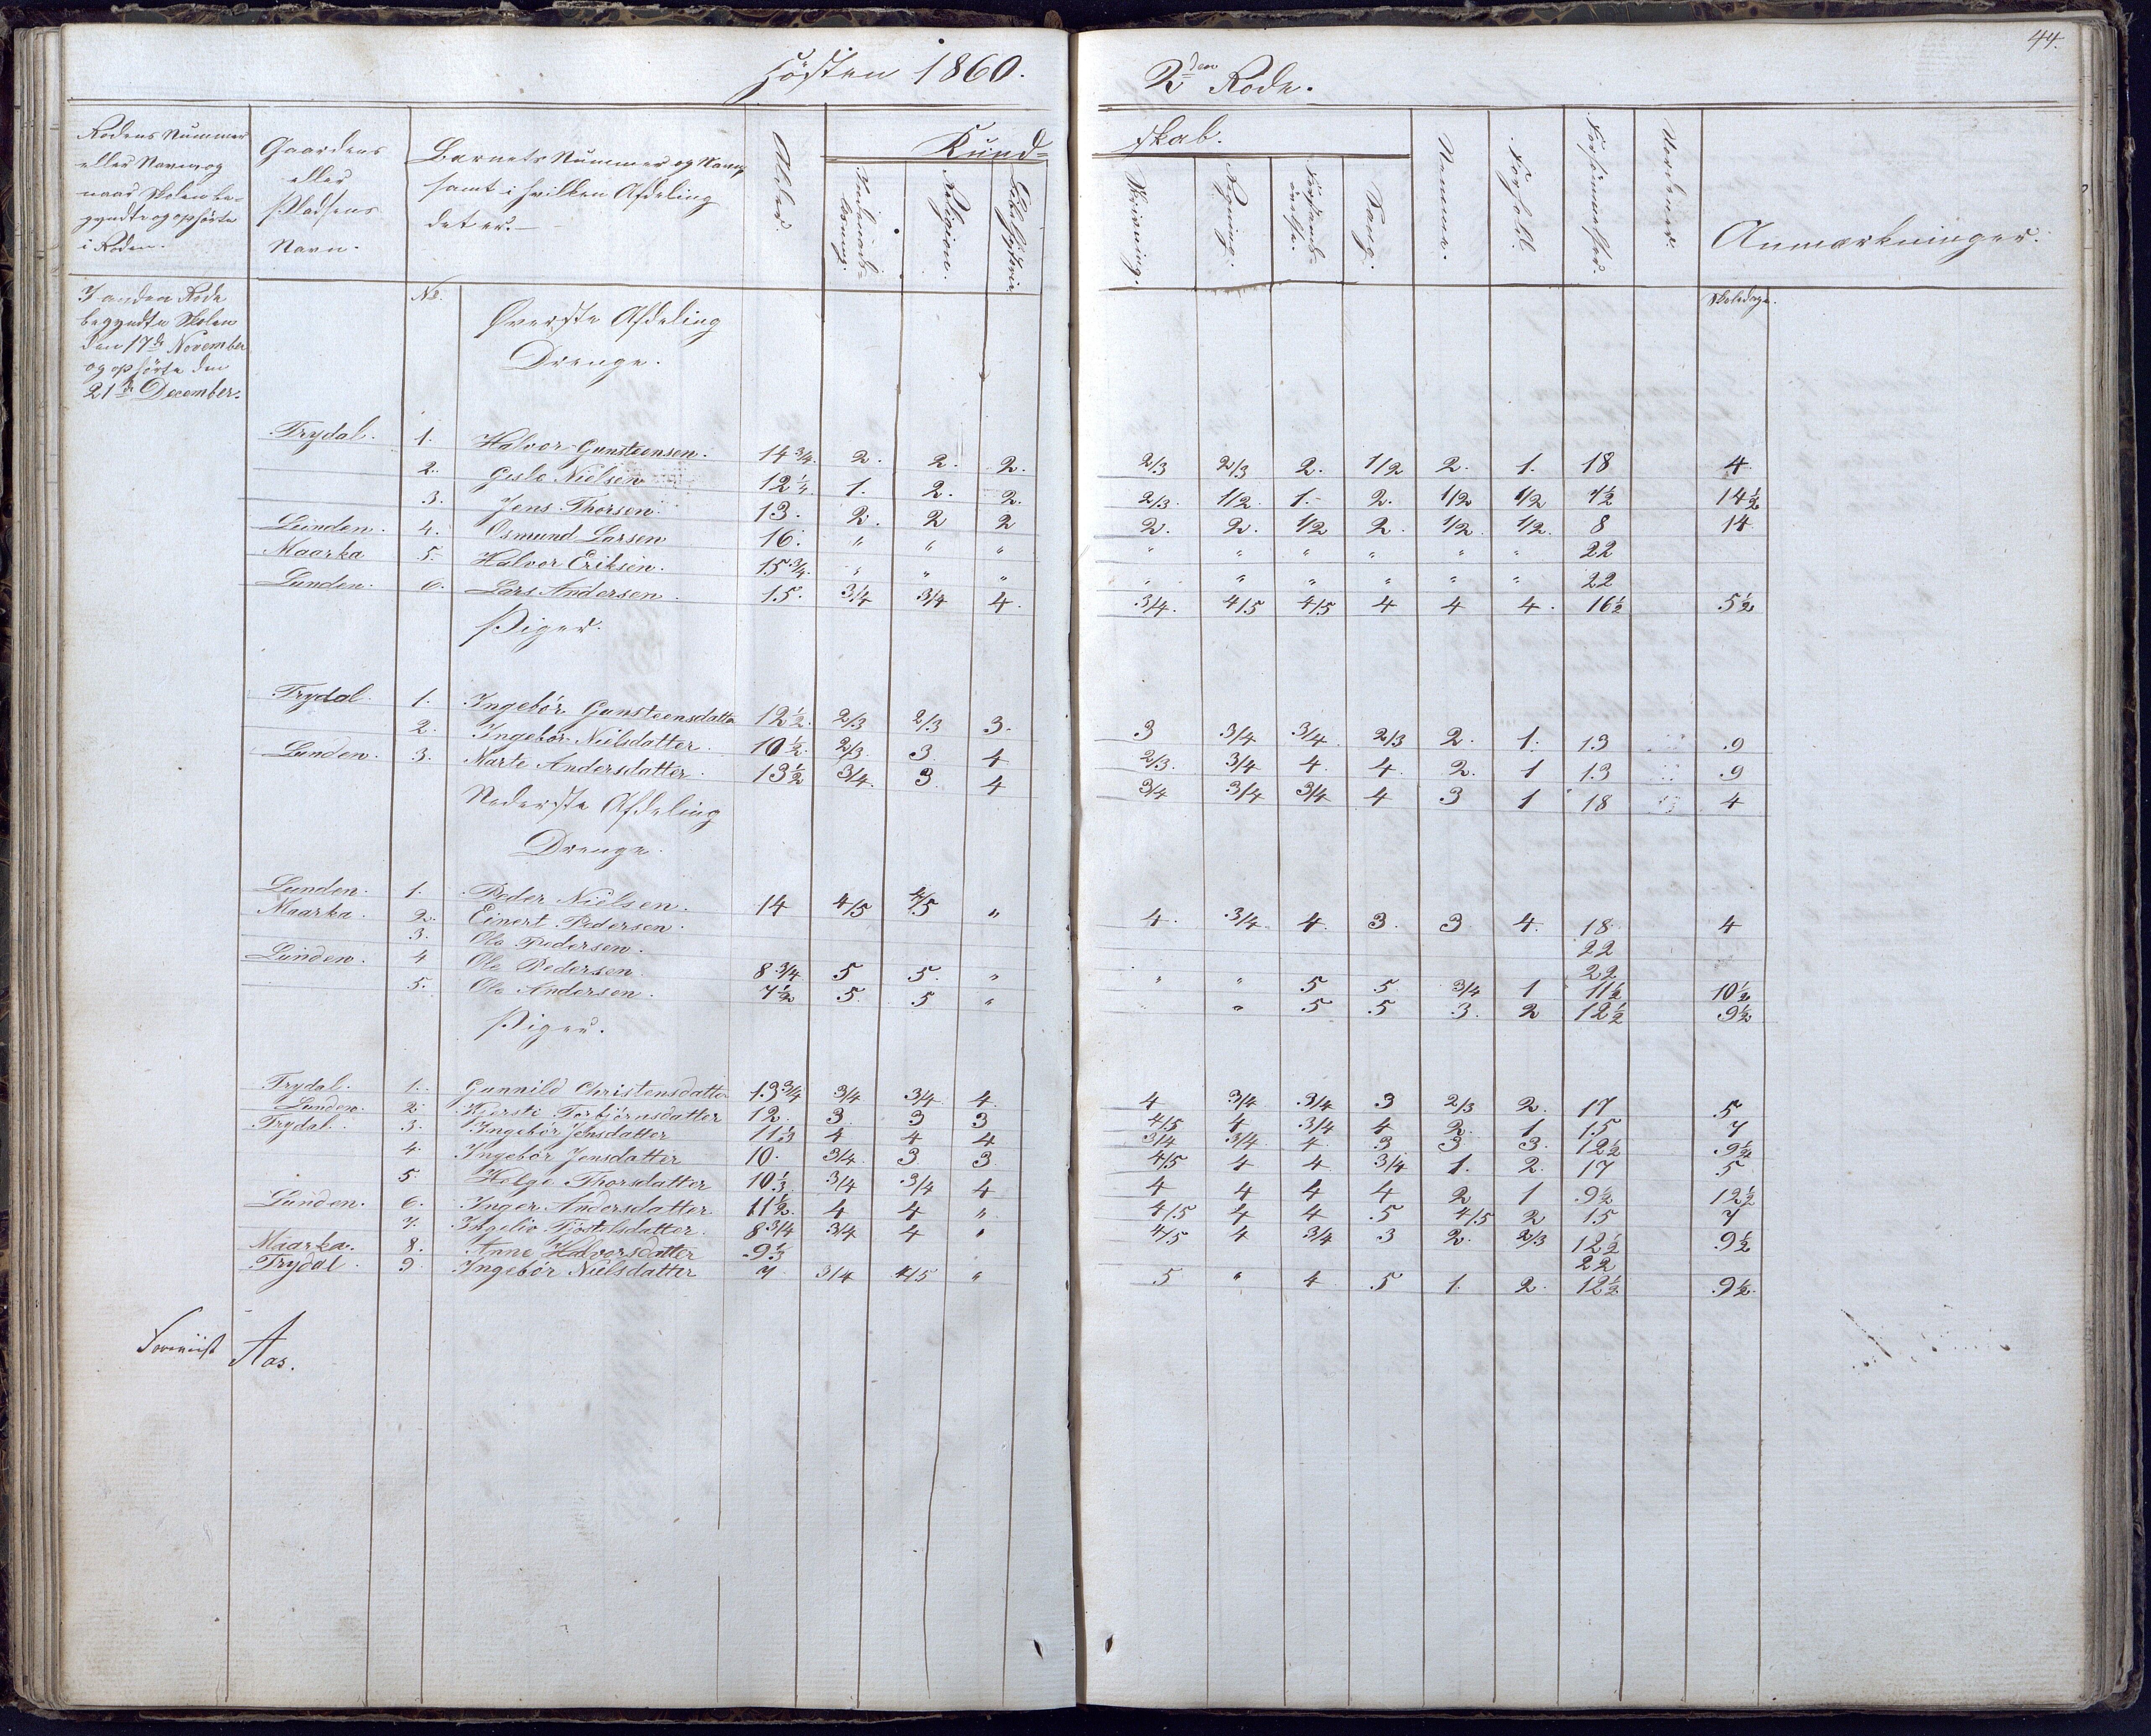 Høsten 1860.
2den Rode.
44.
Rodens Nummer
eller Navn og
naar Skolen be-
gyndte og ophørte
i Roden.
Gaardens
eller
Pladsens
Navn.
Barnets Nummer og Navn
samt i hvilken Afdeling
det er.
Alder.
Kund-
skab.
Religion.
Bibelhistorie
Skrivning.
Regning.
Sang.
Nemme.
Forhold.
Forsømmelser.
Anmærkninger.
I anden Rode
begyndte Skolen
den 17de November
og ophørte den
21de December.
No.
Øverste Afdeling
Drenge.
Skoledage.
Trydal. 1. Halvor Gunsteensen. 14 3/4. 2. 2. 2. 2/3 2/3 2. 1/2 2. 1. 18 4
2. Gisle Nielsen 12 1/4. 1. 2. 2. 2/3. 1/2 1. 2. 1/2 1/2 7½ 14½
3. Jens Thorsen. 13. 2. 2 2 2. 2. 1/2 2. 1/2 1/2. 8 14
Lunden. 4. Osmund Larsen 16. " " " " " " " " " 22
Maarka 5. Halvor Eriksen. 15 3/4. " " " " " " " " " 22
Lunden. 6. Lars Andersen. 15. 3/4 3/4 4. 3/4. 4/5 4/5 4 4 4. 16½ 5½
Piger.
Trydal. 1. Ingebør Gunsteensdatter 12½. 2/3 2/3 3. 3 3/4 3/4. 2/3 2. 1. 13 9
2. Ingebør Nielsdatter. 10½. 2/3. 3. 4 2/3. 3/4 4. 4. 2. 1 13 9
Lunden. 3. Marte Andersdatter. 13½ 3/4. 3. 4 3/4 3/4 3/4 4 3 1 18 4
Nederste Afdeling
Drenge.
Lunden. 1. Peder Nielsen. 14 4/5 4/5 " 4. 3/4. 4. 3. 3 4. 18 4
Maarka. 2. Einert Pedersen. 22
3. Ole Pedersen. 22
Lunden. 4 Ole Pedersen. 8 3/4 5 5. " " " 5 5. 3/4 1 11½ 10½
5. Ole Andersen. 7½ 5. 5 " " 5 5 3. 2 12½ 9½
Piger.
Trydal. 1. Gunnild Christensdatter 13 3/4 3/4 3/4 4. 4 3/4 3/4 3 2/3 2. 17 5
Lunden. 2. Kjersti Torbjørnsdatter 12. 3. 3 3 4/5 4 3/4 4 2. 1 15 7
Trydal. 3. Ingebør Jensdatter 11 1/3 4 4 4 3/4 3/4 4 3 3 3. 12½ 9½
4. Ingebør Jensdatter 10. 3/4. 3. 3. 4/5 4 4 3/4 1. 2. 17 5
5. Helge Thorsdatter 10 1/3 3/4 3/4 4 4 4 4 4 2 1 9½ 12½
Lunden. 6. Inger Andersdatter. 11½. 4 4 " 4/5 4 4 5 4/5 2 15 7
7. Ingelio Kjøstelsdatter. 8 3/4 3/4 4 " 4/5 4 3/4 3 2. 2/3 12½ 9½
Maarka. 8. Anne Halvorsdatter 9 1/3 22
Trydal. 9. Ingebør Nielsdatter 7 3/4 4/5 " 5 " 4 5 1. 2. 12½ 9½
Foreviist Aas.